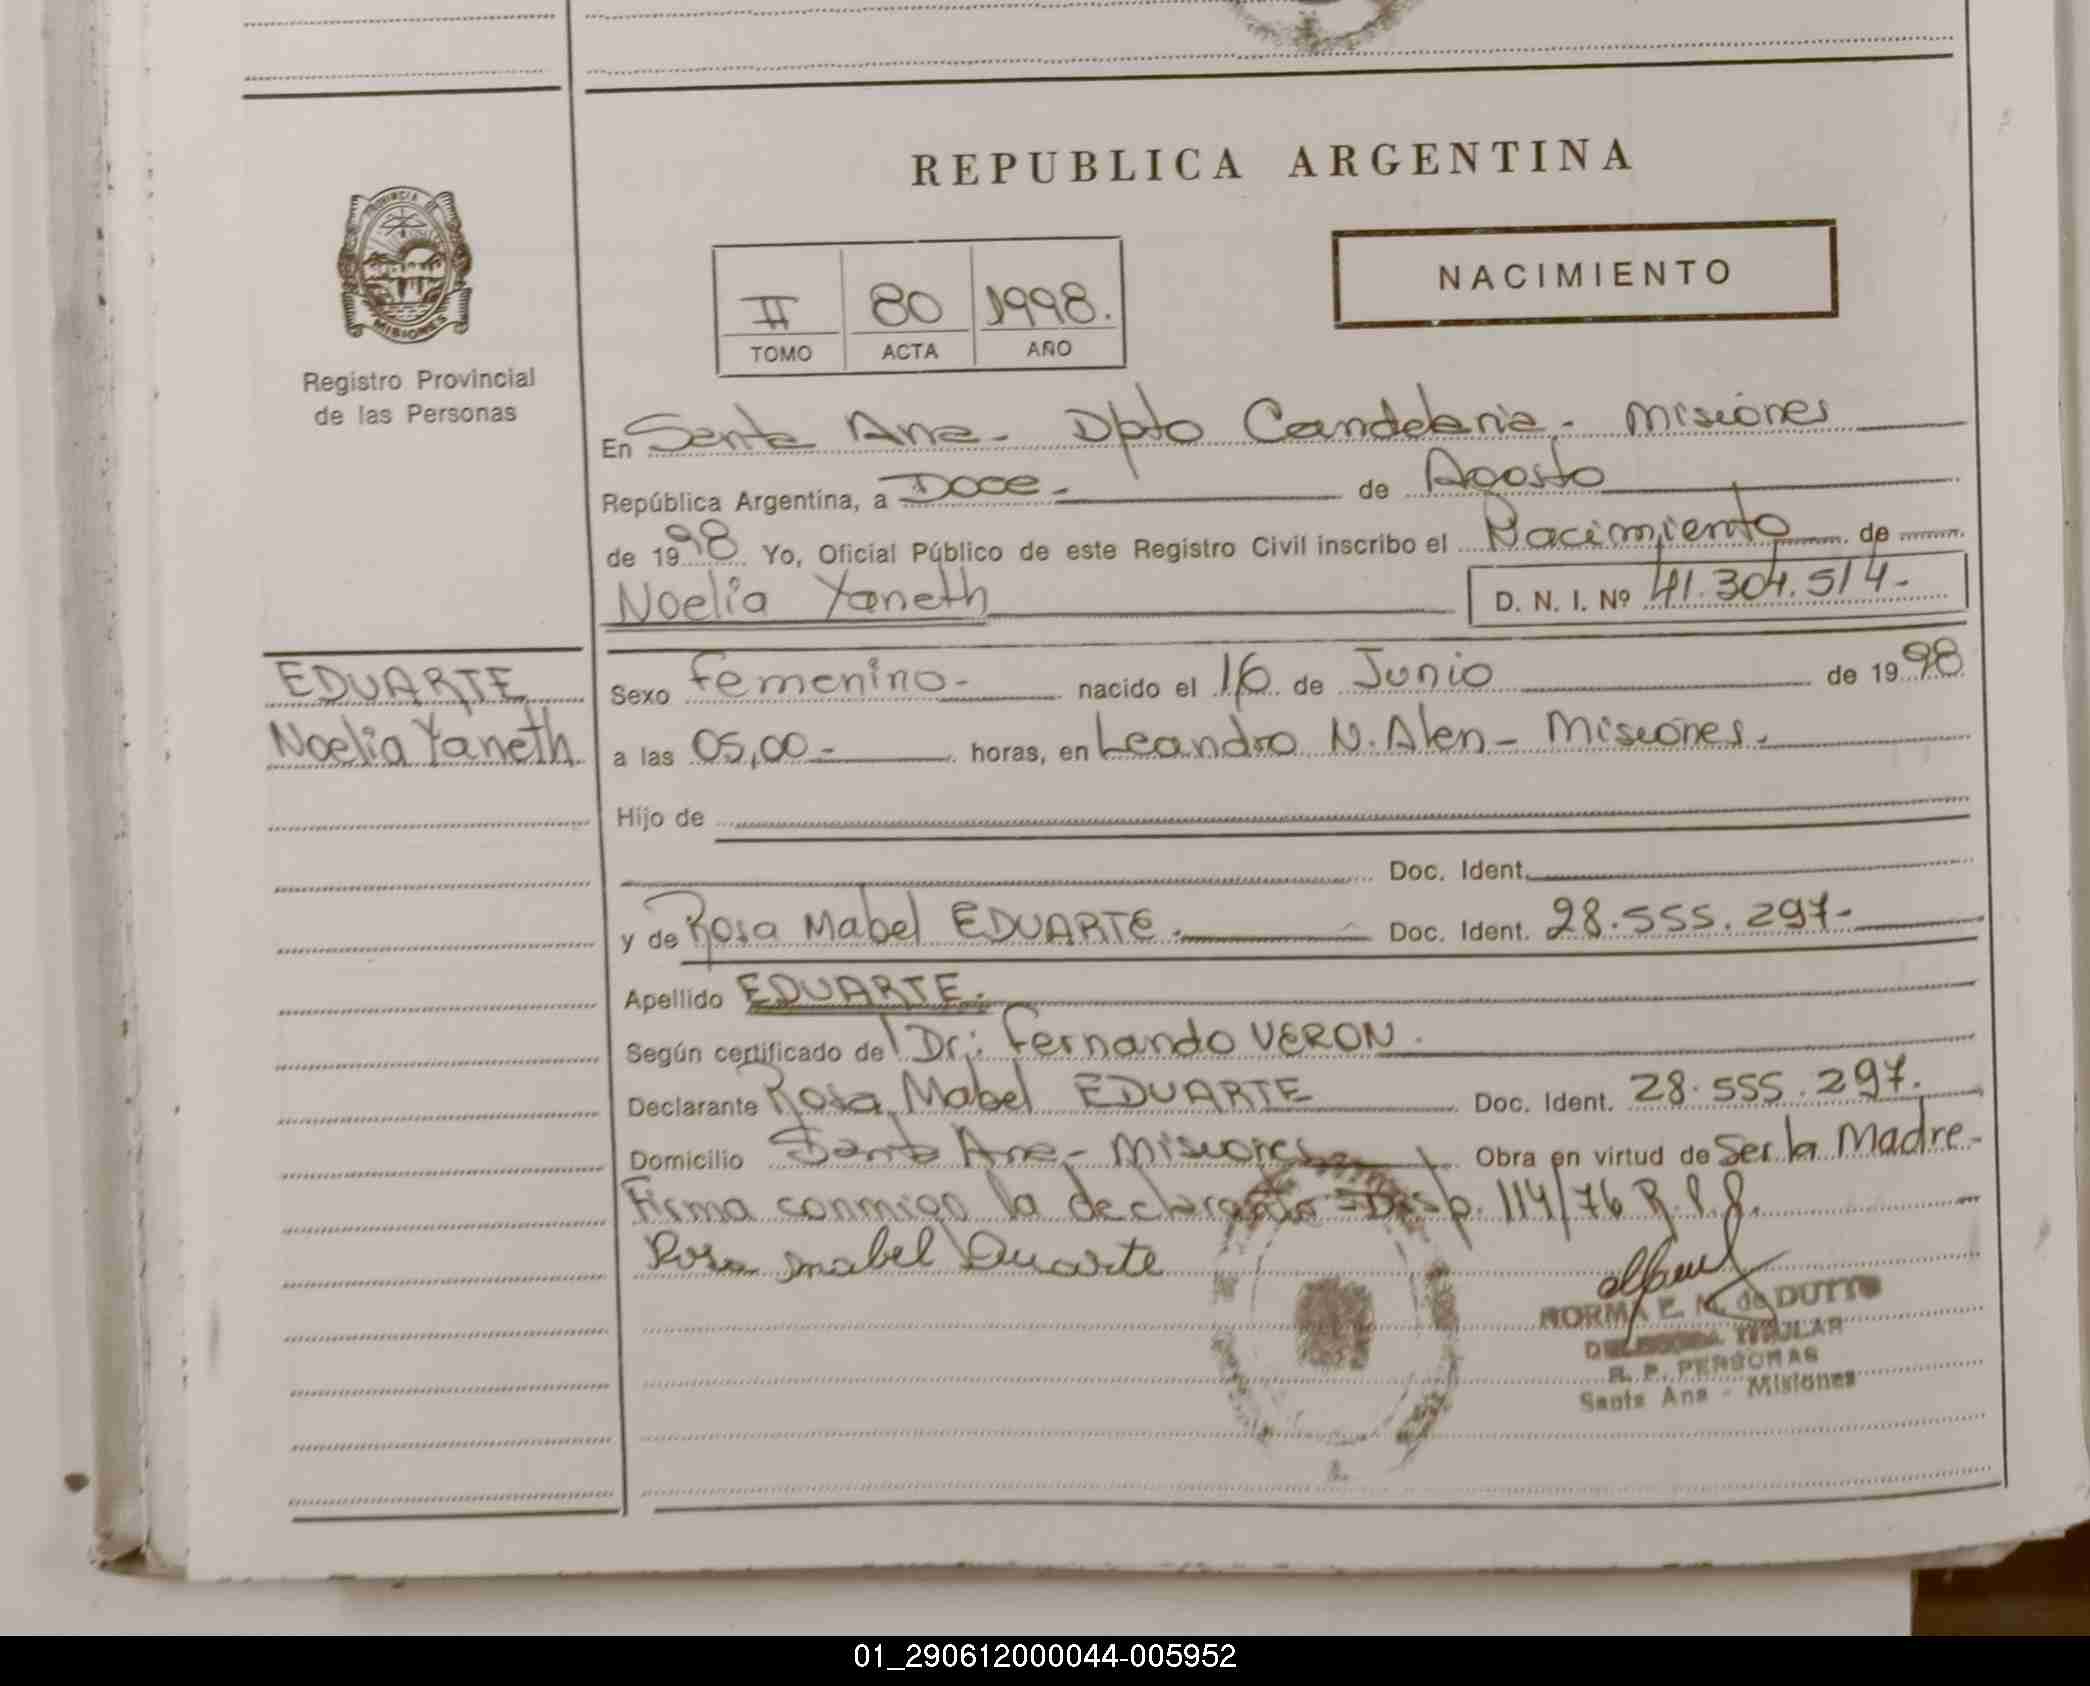 REPUBLICA ARGENTINA
PROVINCIA DE
MISIONES
Registro Provincial
de las Personas
II 80 1998.
TOMO ACTA AÑO
NACIMIENTO
En Santa Ana - Dpto Candelaria - Misiones
República Argentina, a Doce - de Agosto
de 1998 Yo, Oficial Público de este Registro Civil inscribo el Nacimiento de
Noelia Yaneth D. N. I. Nº 41.304.514-
EDUARTE
Noelia Yaneth
Sexo Femenino - nacido el 16 de Junio de 1998
a las 05,00 - horas, en Leandro N. Alen - Misiones.
Hijo de
Doc. Ident.
y de Rosa Mabel EDUARTE. Doc. Ident. 28.555.297-
Apellido EDUARTE.
Según certificado de Dr: Fernando VERON.
Declarante Rosa Mabel EDUARTE Doc. Ident. 28.555.297.
Domicilio Santa Ana - Misiones Obra en virtud de Ser la Madre -
Firma conmigo la declarante - Disp. 114/76 R.P.P.
Rosa Mabel Duarte
NORMA E. M. de DUTTO
DELEGADA TITULAR
R. P. PERSONAS
Santa Ana - Misiones
01_290612000044-005952